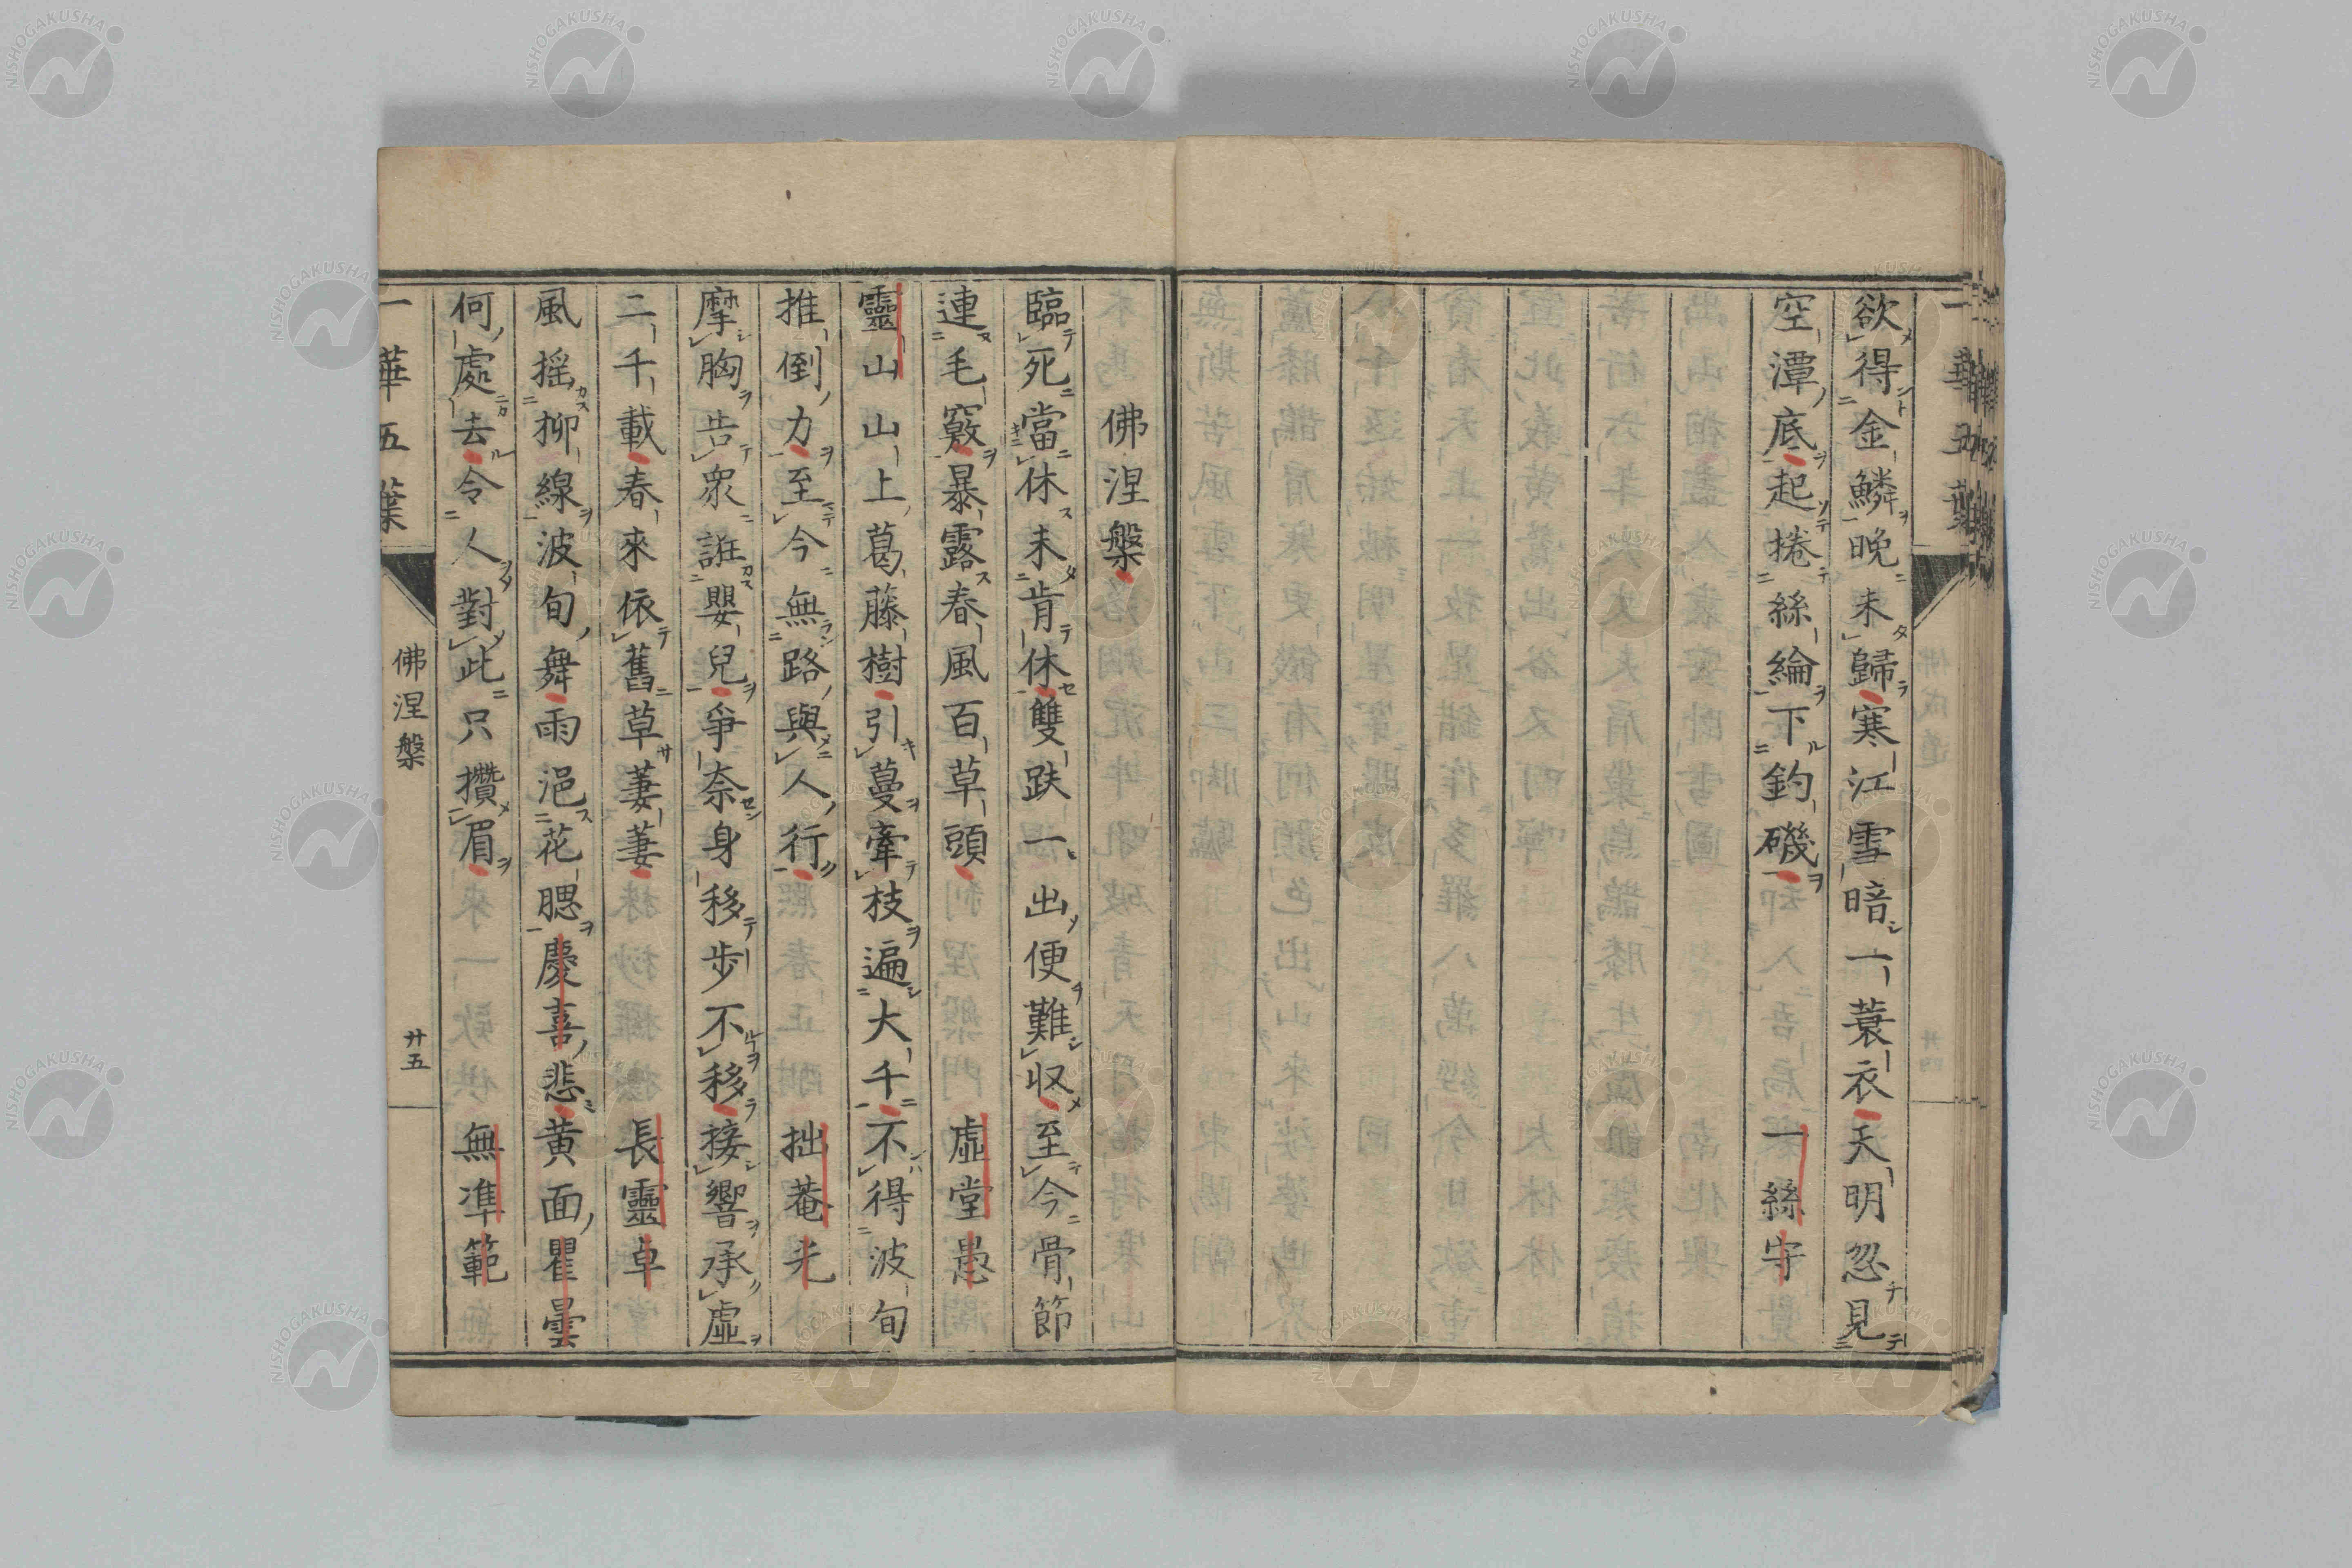 欲得金鱗晩未歸寒江雪暗一蓑衣天明忽見
空潭底起捲絲綸下釣磯 一絲守
佛涅槃
臨死當休未肯休雙趺一出便難収至今骨節
連毛竅暴露春風百草頭 虛堂愚
靈山山上葛藤樹引蔓牽枝遍大千不得波旬
推倒力至今無路與人行 拙菴光
摩胸告衆誑嬰兒爭奈身移步不移接響承虛
二千載春來依舊草萋萋 長靈卓
風搖柳線波旬舞雨浥花腮慶喜悲黄面瞿曇
何處去令人對此只攢眉 無準範
一華五葉 佛涅槃 廿五